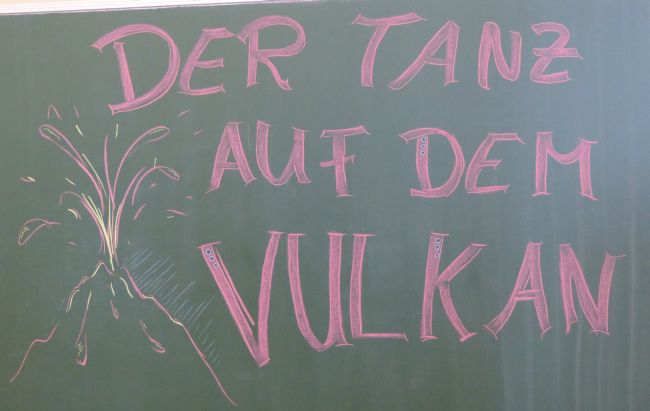 DER TANZ
AUF DEM
VULKAN